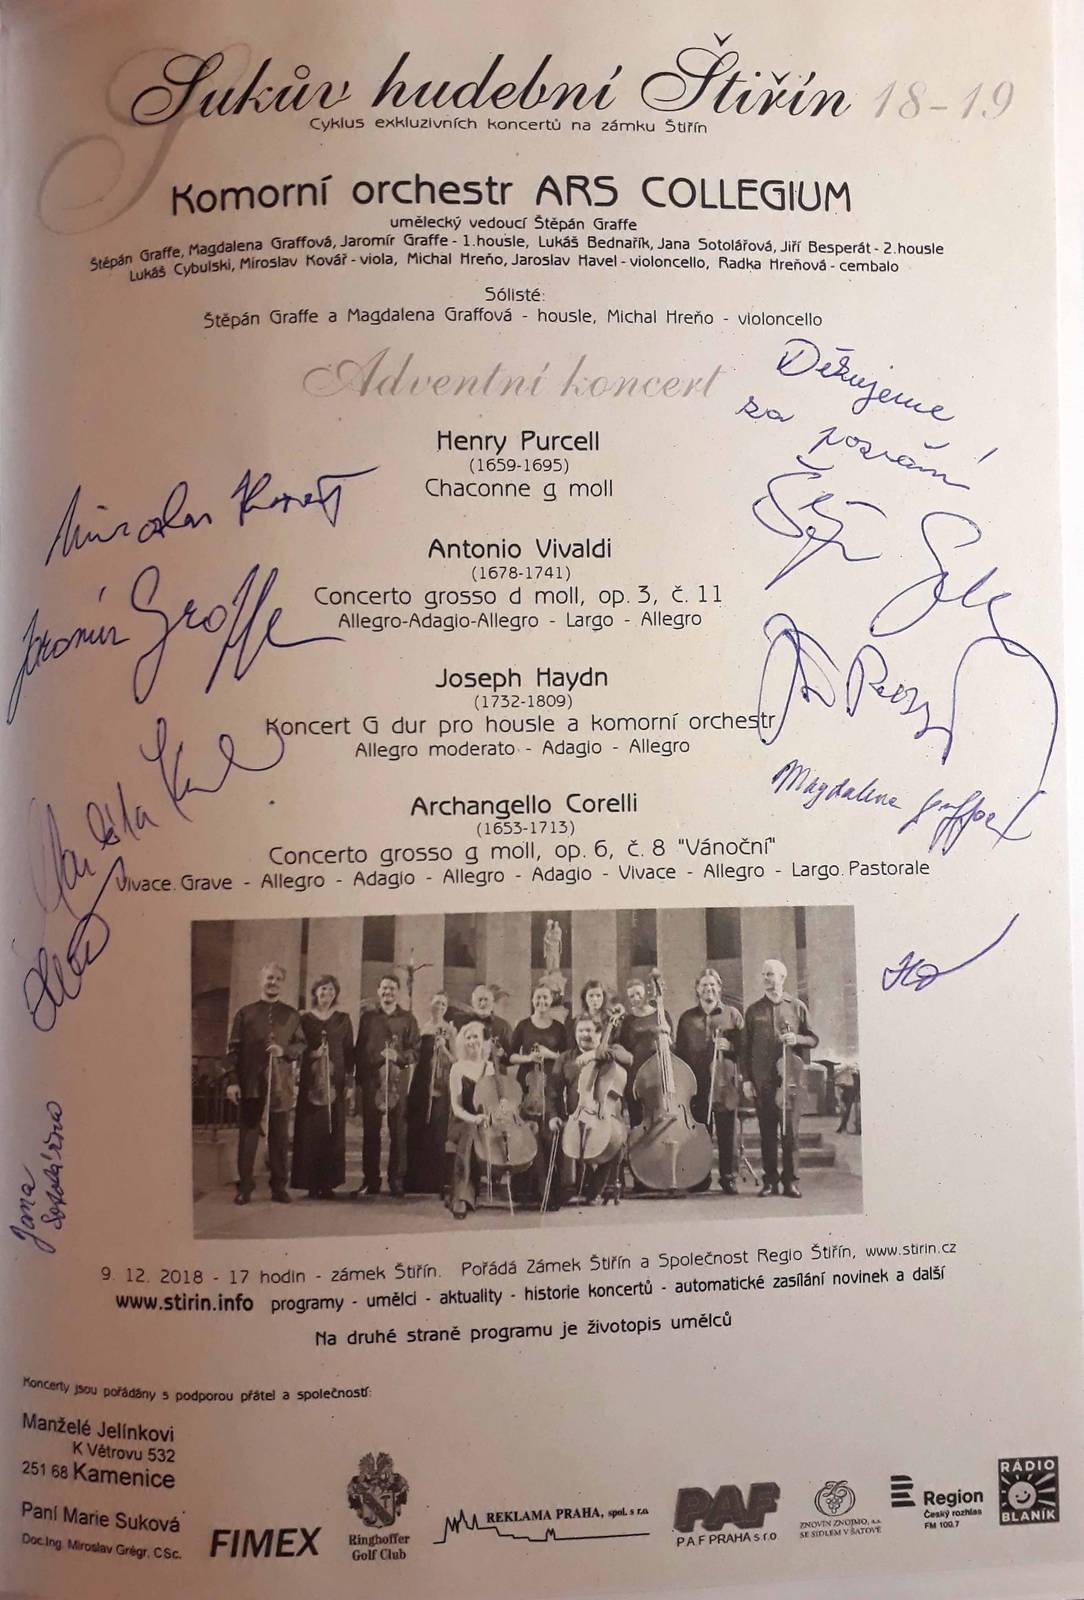 Sukův hudební Štiřín 18-19
Cyklus exkluzivních koncertů na zámku Štiřín
Komorní orchestr ARS COLLEGIUM
umělecký vedoucí Štěpán Graffe
Štěpán Graffe, Magdalena Graffová, Jaromír Graffe - 1.housle, Lukáš Bednařík, Jana Sotolářová, Jiří Besperát - 2.housle
Lukáš Cybulski, Miroslav Kovář - viola, Michal Hreňo, Jaroslav Havel - violoncello, Radka Hreňová - cembalo
Sólisté:
Štěpán Graffe a Magdalena Graffová - housle, Michal Hreňo - violoncello
Adventní koncert
Děkujeme
za pozvání
Henry Purcell
(1659-1695)
Chaconne g moll
Miroslav
Antonio Vivaldi
(1678-1741)
Concerto grosso d moll, op. 3, č. 11
Allegro-Adagio-Allegro - Largo - Allegro
Jaromír Graffe
Joseph Haydn
(1732-1809)
Koncert G dur pro housle a komorní orchestr
Allegro moderato - Adagio - Allegro
Magdalena
Archangello Corelli
(1653-1713)
Concerto grosso g moll, op. 6, č. 8 "Vánoční"
Vivace. Grave - Allegro - Adagio - Allegro - Adagio - Vivace - Allegro - Largo. Pastorale
Jana
Sotolářová
9. 12. 2018 - 17 hodin - zámek Štiřín. Pořádá Zámek Štiřín a Společnost Regio Štiřín, www.stirin.cz
www.stirin.info programy - umělci - aktuality - historie koncertů - automatické zasílání novinek a další
Na druhé straně programu je životopis umělců
Koncerty jsou pořádány s podporou přátel a společností:
Manželé Jelínkovi
K Větrovu 532
251 68 Kamenice
Paní Marie Suková
Doc.Ing. Miroslav Grégr, CSc.
FIMEX
Ringhoffer
Golf Club
REKLAMA PRAHA, spol. s r.o.
PAF
PAF PRAHA s r.o
ZNOVÍN ZNOJMO, a.s.
SE SÍDLEM V ŠATOVĚ
Region
Český rozhlas
FM 100.7
RÁDIO
BLANÍK